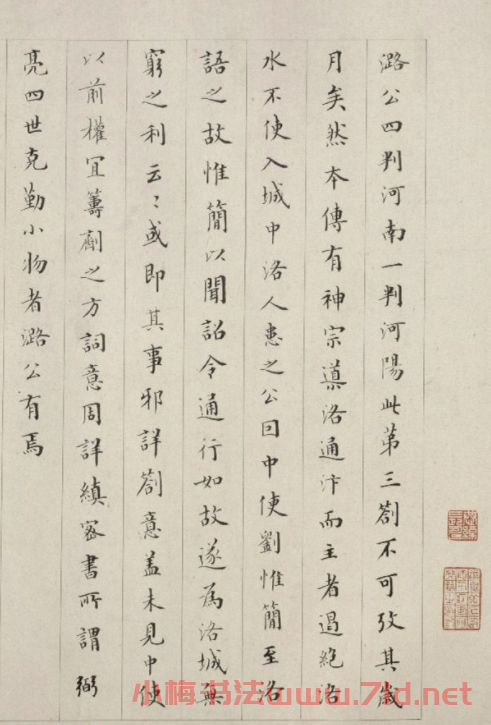 潞公四判河南一判河陽此第三劄不可攷其歲
月矣然本傳有神宗導洛通汴而主者遏絶洛
水不使入城中洛人患之公因中使劉惟簡至洛
語之故惟簡以聞詔令通行如故遂爲洛城無
窮之利云〻或即其事邪詳劄意蓋未見中使
以前權宜籌劑之方詞意周詳縝密書所謂弼
亮四世克勤小物者潞公有焉
小梅书法www.7jd.net